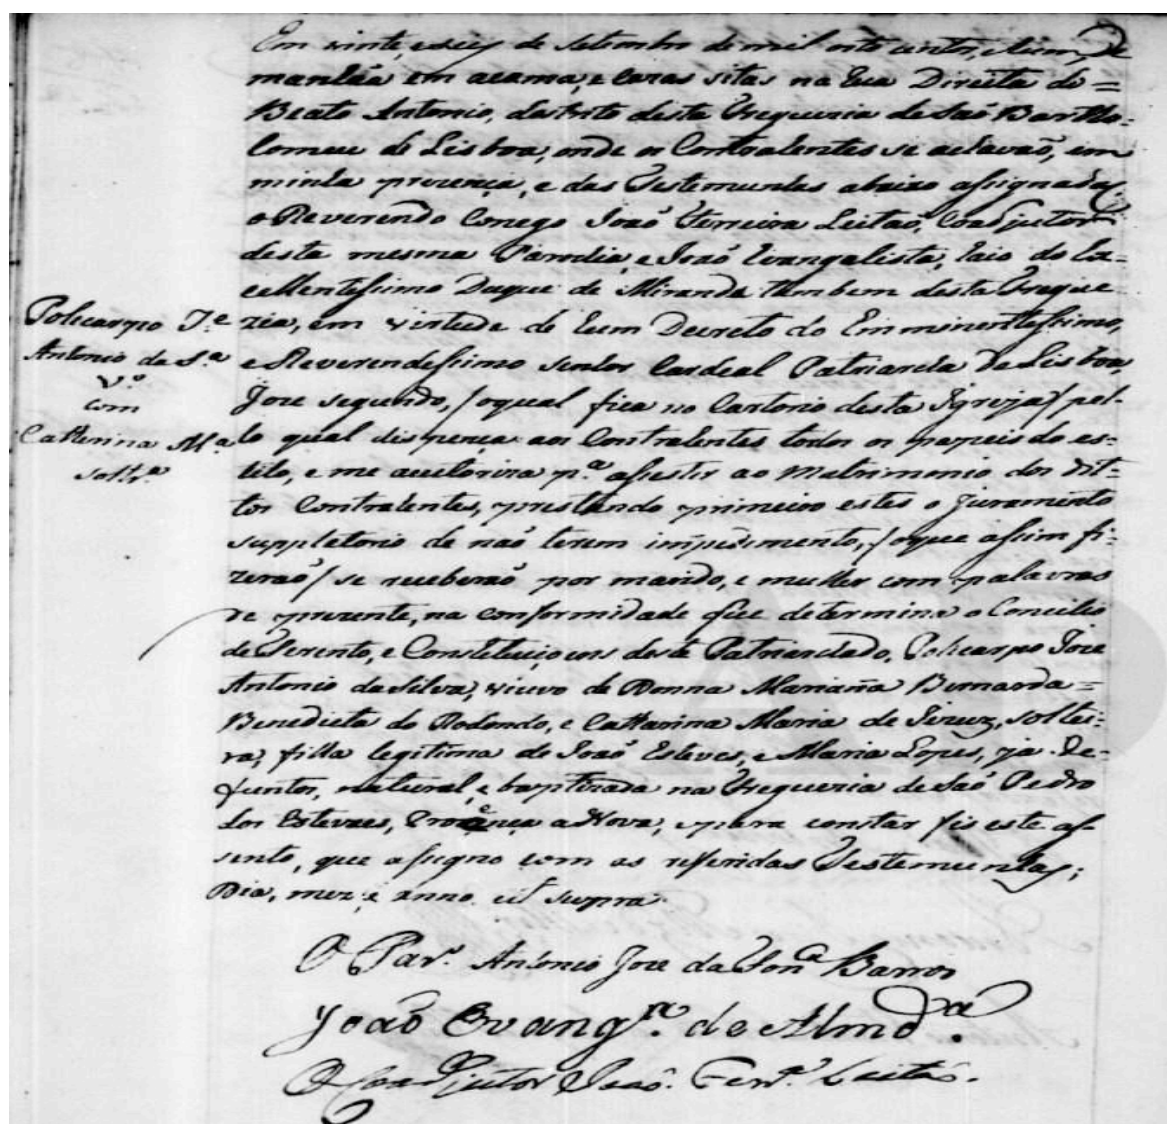 Policarpo J.e
Antonio da S.a
V.o
com
Catherina M.a
soltr.a
Em vinte, e seis de Setembro de mil oito centos, e hum, de
manhãa em a cama, e cazas sitas na Rua Direita do =
Beato Antonio, destrito desta Freguezia de São Bartho-
lomeu de Lisboa, onde os Contrahentes se achavão, em
minha prezença, e das Testemunhas abaixo assignadas
o Reverendo Conego João Ferreira Leitão, Coadjutor
desta mesma Parochia, e João Evangelista, Aio do Ex-
cellentissimo Duque de Miranda tambem desta Fregue
zia, em virtude de hum Decreto do Emminentissimo,
e Reverendissimo Senhor Cardeal Patriarcha de Lisboa,
Joze segundo, /o qual fica no Cartorio desta Igreja/ pel-
lo qual dispença aos Contrahentes todos os papeis do es-
tilo, e me authoriza p.a assistir ao Matrimonio dos dit-
tos Contrahentes, prestando primeiro estes o Juramento
suppletorio de não terem impedimento, /o que assim fi-
zerão/ se receberão por marido, e mulher com palavras
de prezente, na conformidade que determina o Concilio
de Terento, e Constituiçoens deste Patriarchado, Policarpo Joze
Antonio da Silva, viuvo de Donna Mariana Bernarda =
Benedicta do Rodondo, e Catharina Maria de Jezuz, soltei-
ra, filha legitima de João Esteves, e Maria Lopes, ja de-
funtos, natural, e baptizada na Freguezia de São Pedro
dos Estevaes, Proença a Nova, e para constar fis este as-
sento, que assigno com as referidas Testemunhas;
Dia, mez, e anno ut supra.
O Par.o Antonio Joze da Fon.ca Barros
João Evang.ta de Almd.a
O Coadjutor João Ferr.a Leitão.